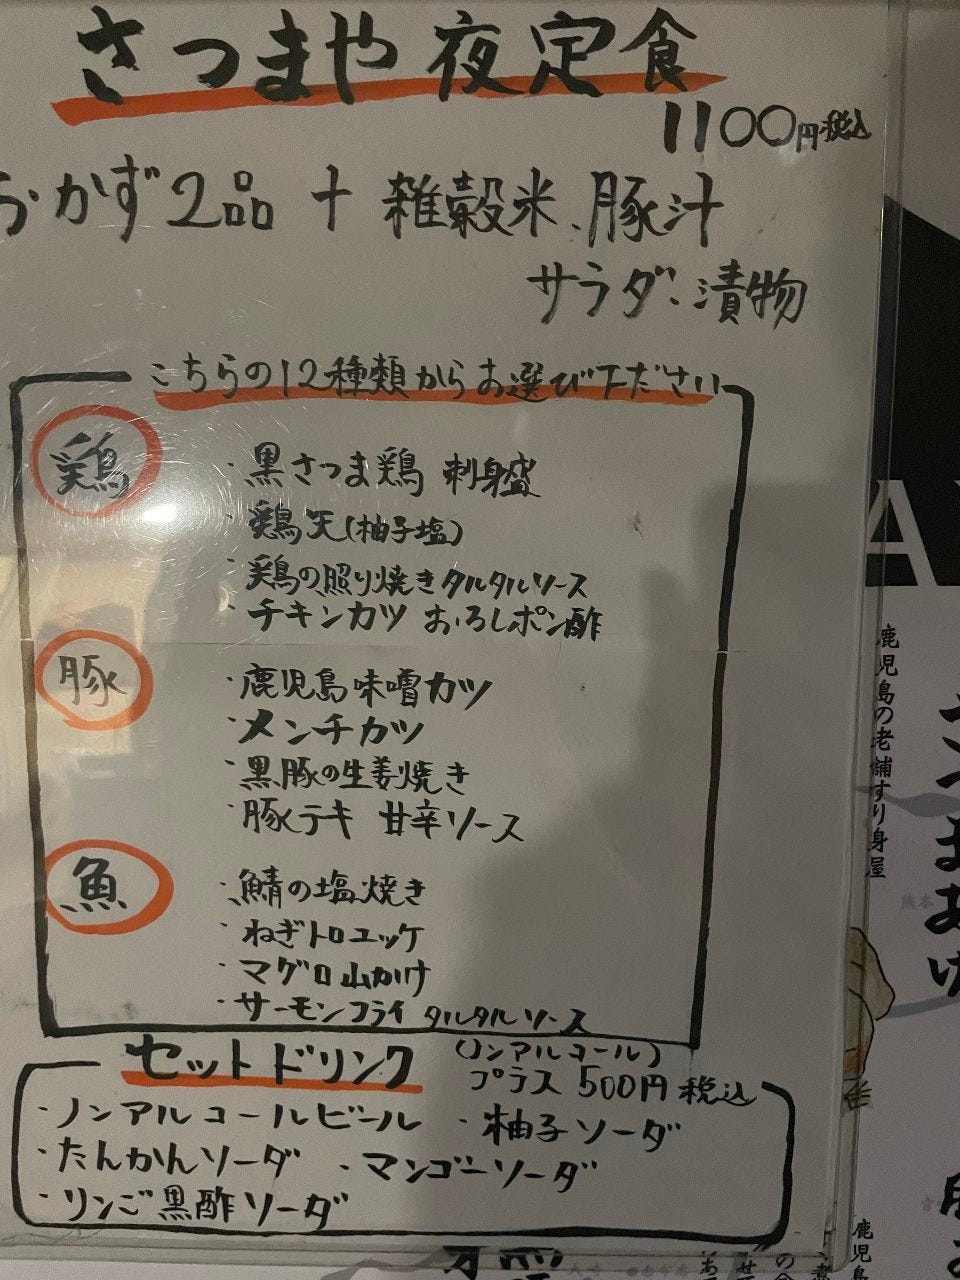 さつまや 夜定食
1100円税込
おかず2品 + 雑穀米、豚汁
サラダ、漬物
こちらの12種類からお選び下ださい
鶏
・黒さつま鶏 刺身盛
・鶏天(柚子塩)
・鶏の照り焼きタルタルソース
・チキンカツ おろしポン酢
豚
・鹿児島味噌カツ
・メンチカツ
・黒豚の生姜焼き
・豚テキ 甘辛ソース
魚
・鯖の塩焼き
・ねぎトロユッケ
・マグロ山かけ
・サーモンフライ タルタルソース
セットドリンク (ノンアルコール)
プラス 500円 税込
・ノンアルコールビール ・柚子ソーダ
・たんかんソーダ ・マンゴーソーダ
・リンご黒酢ソーダ
鹿児島の老舗すり身屋
さつまあげ
熊本
鹿児島